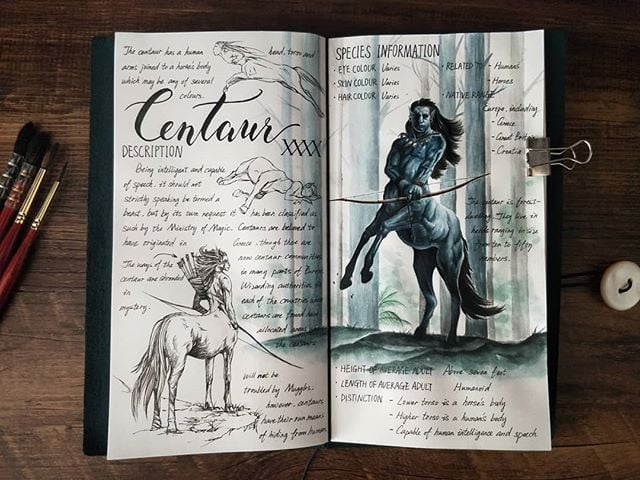 The centaur has a human head, torso and
arms joined to a horse's body
which may be any of several
colours.
Centaur
XXXX
DESCRIPTION
Being intelligent and capable
of speech, it should not
strictly speaking be termed a
beast, but by its own request it has been classified as
such by the Ministry of Magic. Centaurs are believed to
have originated in Greece, though there are
now centaur communities
in many parts of Europe.
Wizarding authorities in
each of the countries where
centaurs are found have
allocated areas where
the centaurs
will not be
troubled by Muggles,
however, centaurs
have their own means
of hiding from humans.
The ways of the
centaur are shrouded
in
mystery.
SPECIES INFORMATION
• EYE COLOUR Varies
• SKIN COLOUR Varies
• HAIR COLOUR Varies
• RELATED TO - Humans
- Horses
• NATIVE RANGE
Europe, including
- Greece
- Great
- Croatia
The centaur is forest-
dwelling. They live in
herds ranging in size
from ten to fifty
members.
• HEIGHT OF AVERAGE ADULT Above seven feet
• LENGTH OF AVERAGE ADULT Humanoid
• DISTINCTION - Lower torso is a horse's body
- Higher torso is a human's body
- Capable of human intelligence and speech